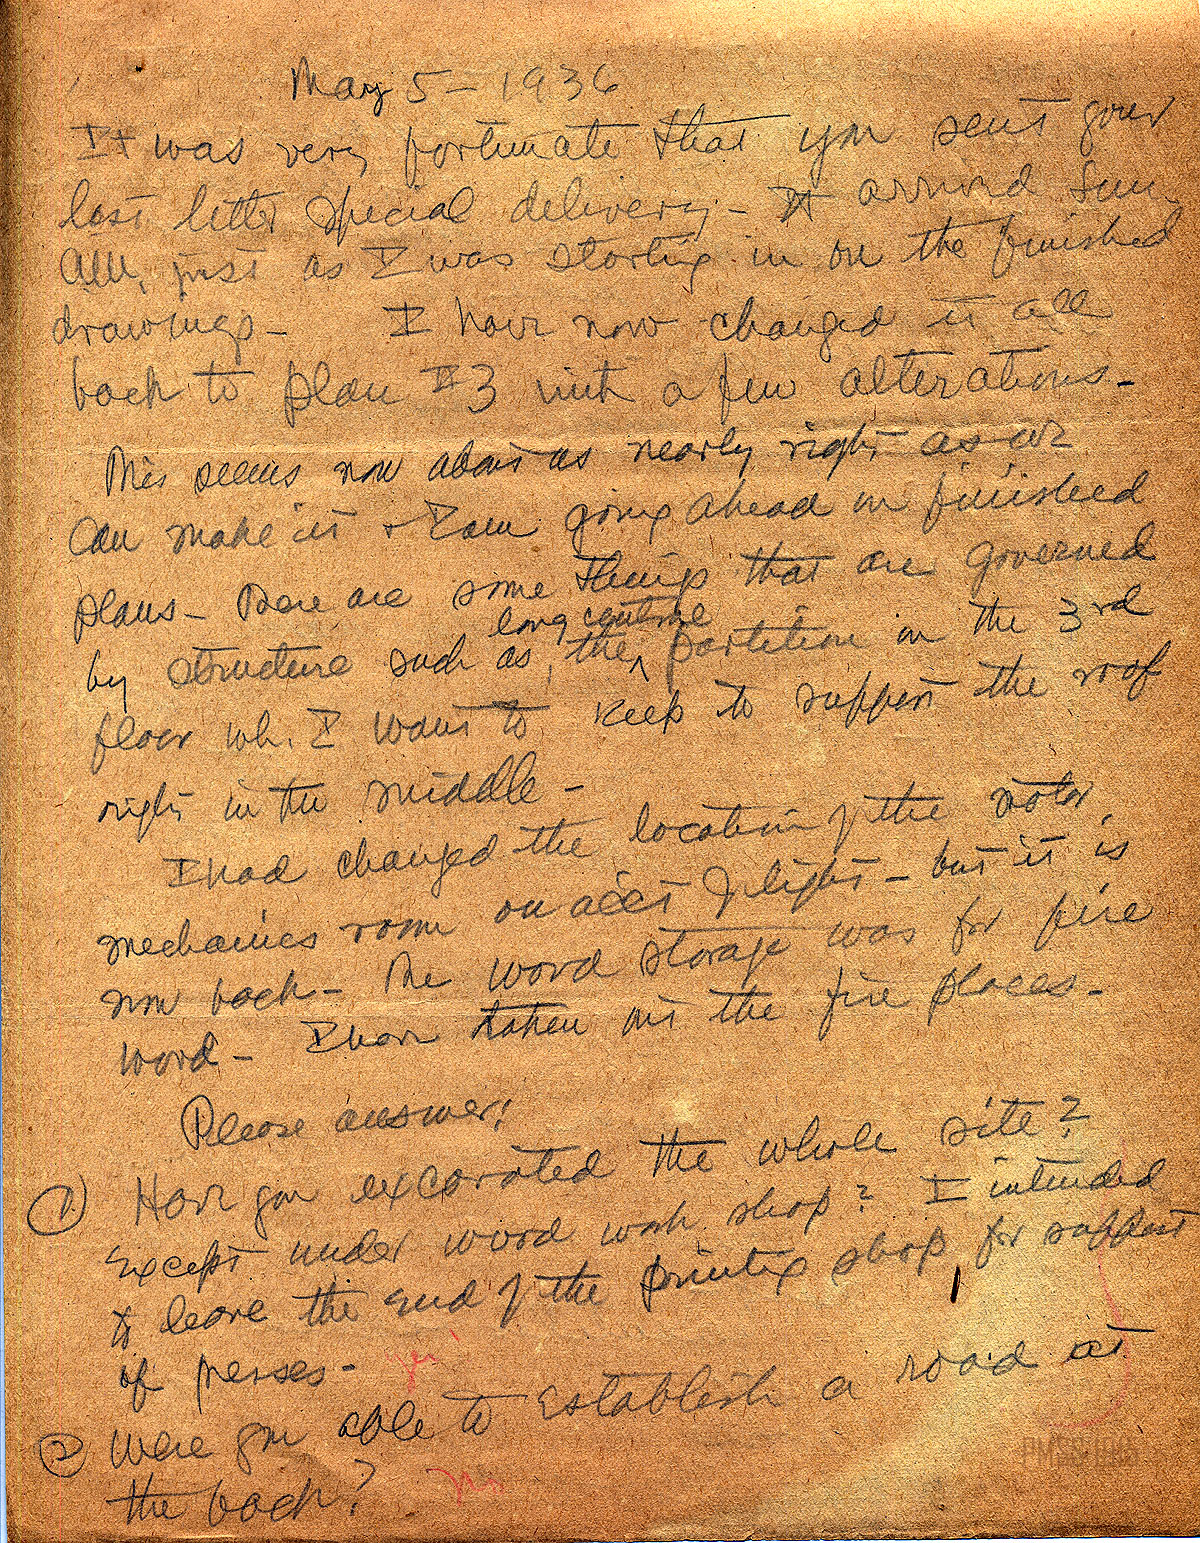 May 5 - 1936
It was very fortunate that you sent your
last letter special delivery - It arrived Sun.
AM, just as I was starting in on the finished
drawings - I have now changed it all
back to plan #3 with a few alterations -
This seems now about as nearly right as we
can make it & I am going ahead on finished
plans - There are some things that are governed
by structure such as, the partition on the 3rd
long centre
floor wh. I want to keep to support the roof
right in the middle -
I had changed the location of the motor
mechanics room on acc't of light - but it is
now back - The wood storage was for fire
wood - I have taken out the fire places -
Please answer:
1.) Have you excavated the whole site?
Except under wood work shop? I intended
to leave the end of the printing shop for support
of presses - yes
2 Were you able to establish a road at
the back? No